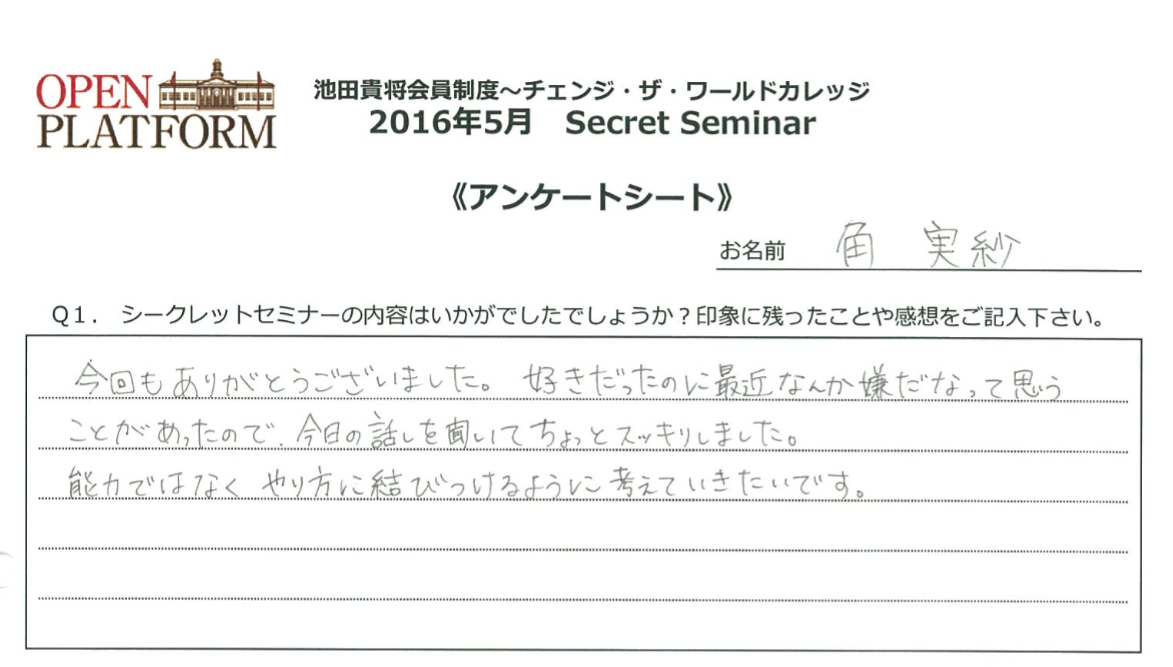 OPEN
PLATFORM
池田貴将会員制度～チェンジ・ザ・ワールドカレッジ
2016年5月 Secret Seminar
《アンケートシート》
お名前 角 実紗
Q1. シークレットセミナーの内容はいかがでしたでしょうか？印象に残ったことや感想をご記入下さい。
今回もありがとうございました。 好きだったのに最近なんか嫌だなって思う
ことがあったので、今日の話しを聞いてちょっとスッキリしました。
能力ではなく やり方に結びつけるように考えていきたいです。